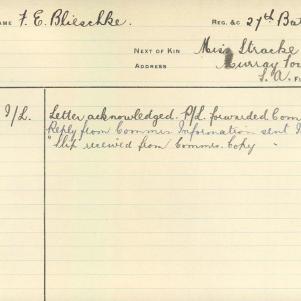 NAME F. E. Blieschke. REG. &C 27th Bat
NEXT OF KIN Miss Stracke
ADDRESS Murray
S. A.
I/L. Letter acknowledged. P/L. forwarded Comm
Reply from Commrs Information sent
" Slip received from Commrs. Copy "